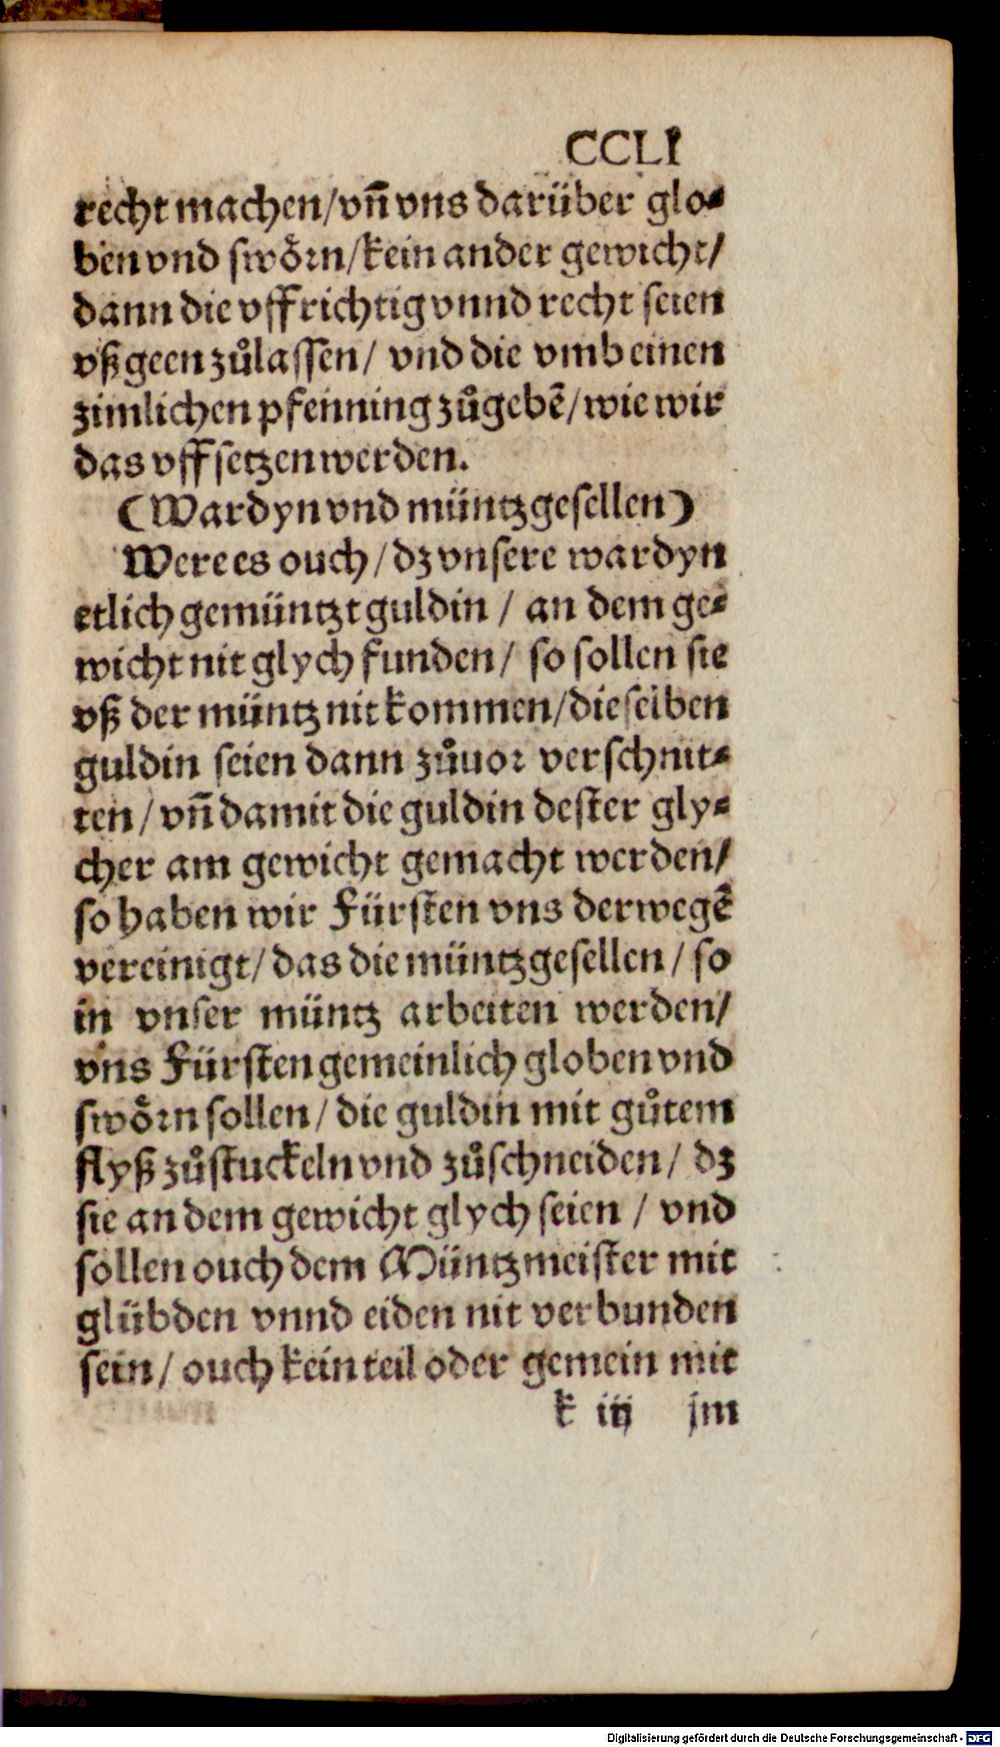 CCLI
recht machen/vñ vns darüber glo⸗
ben vnd swoͤrn/kein ander gewicht/
dann die vff richtig vnnd recht seien
vß geen zůlassen/ vnd die vmb einen
zimlichen pfenning zůgebē/wie wir
das vff setzen werden.
(Wardyn vnd müntzgesellen)
Were es ouch/dz vnsere wardyn
etlich gemüntzt guldin / an dem ge⸗
wicht nit glych funden/ so sollen sie
vß der müntz nit kommen/dieselben
guldin seien dann zůuor verschnit⸗
ten/vñ damit die guldin dester gly⸗
cher am gewicht gemacht werden/
so haben wir Fürsten vns derwegē
vereinigt/das die müntzgesellen/so
in vnser müntz arbeiten werden/
vns Fürsten gemeinlich globen vnd
swoͤrn sollen/die guldin mit gůtem
flyß zůstuckeln vnd zůschneiden/ dz
sie an dem gewicht glych seien / vnd
sollen ouch dem Müntzmeister mit
glübden vnnd eiden nit verbunden
sein/ ouch kein teil oder gemein mit
k iij jm
Digitalisierung gefördert durch die Deutsche Forschungsgemeinschaft - DFG